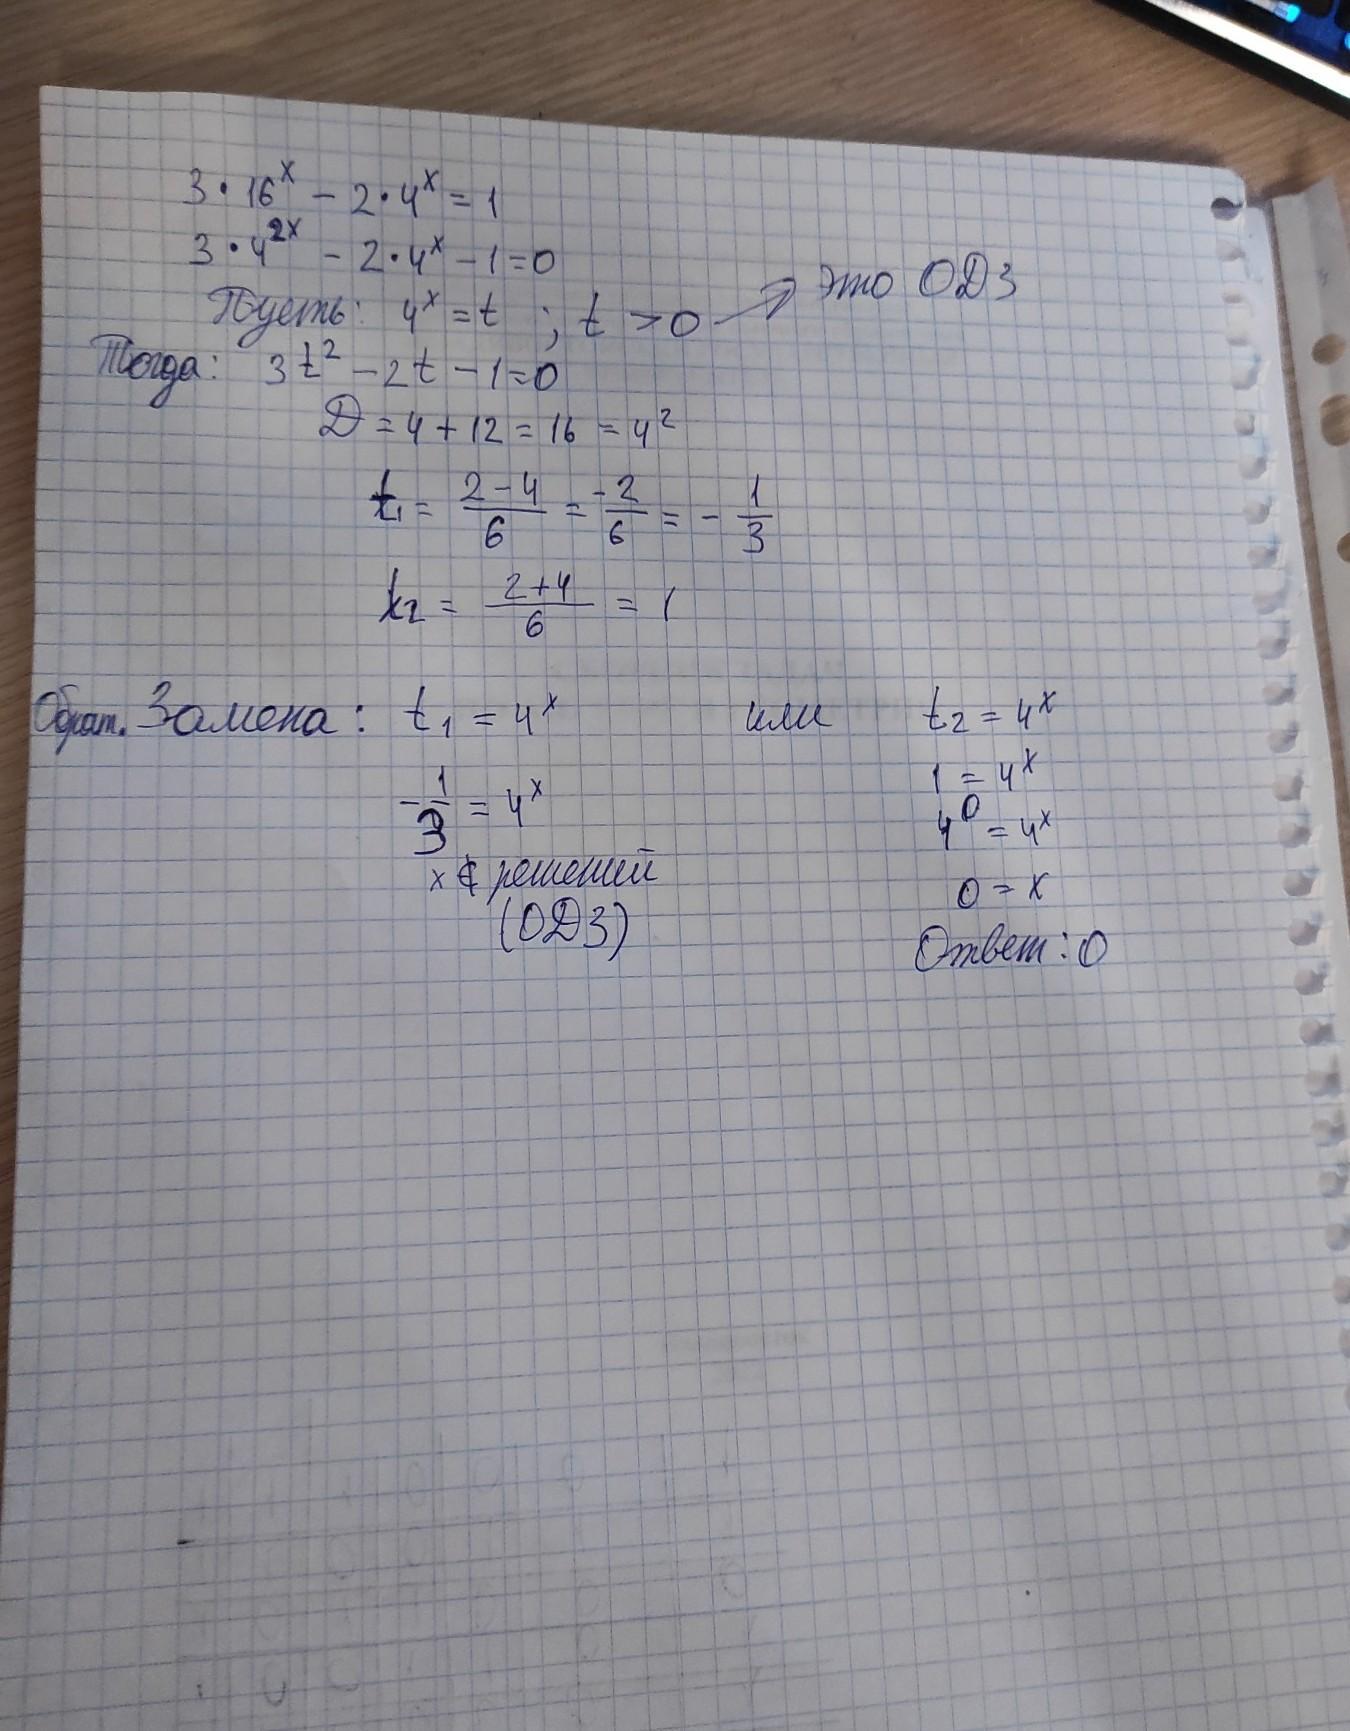 3·16^x − 2·4^x = 1
3·4^2x − 2·4^x − 1 = 0
Пусть: 4^x = t ; t > 0 → это ОДЗ
Тогда: 3t² − 2t − 1 = 0
Д = 4 + 12 = 16 = 4²
t₁ = (2 − 4)/6 = −2/6 = − 1/3
t₂ = (2+4)/6 = 1
Обрат. Замена: t₁ = 4^x или t₂ = 4^x
−1/3 = 4^x 1 = 4^x
4^0 = 4^x
x ∉ решений 0 = x
(ОДЗ) Ответ: 0